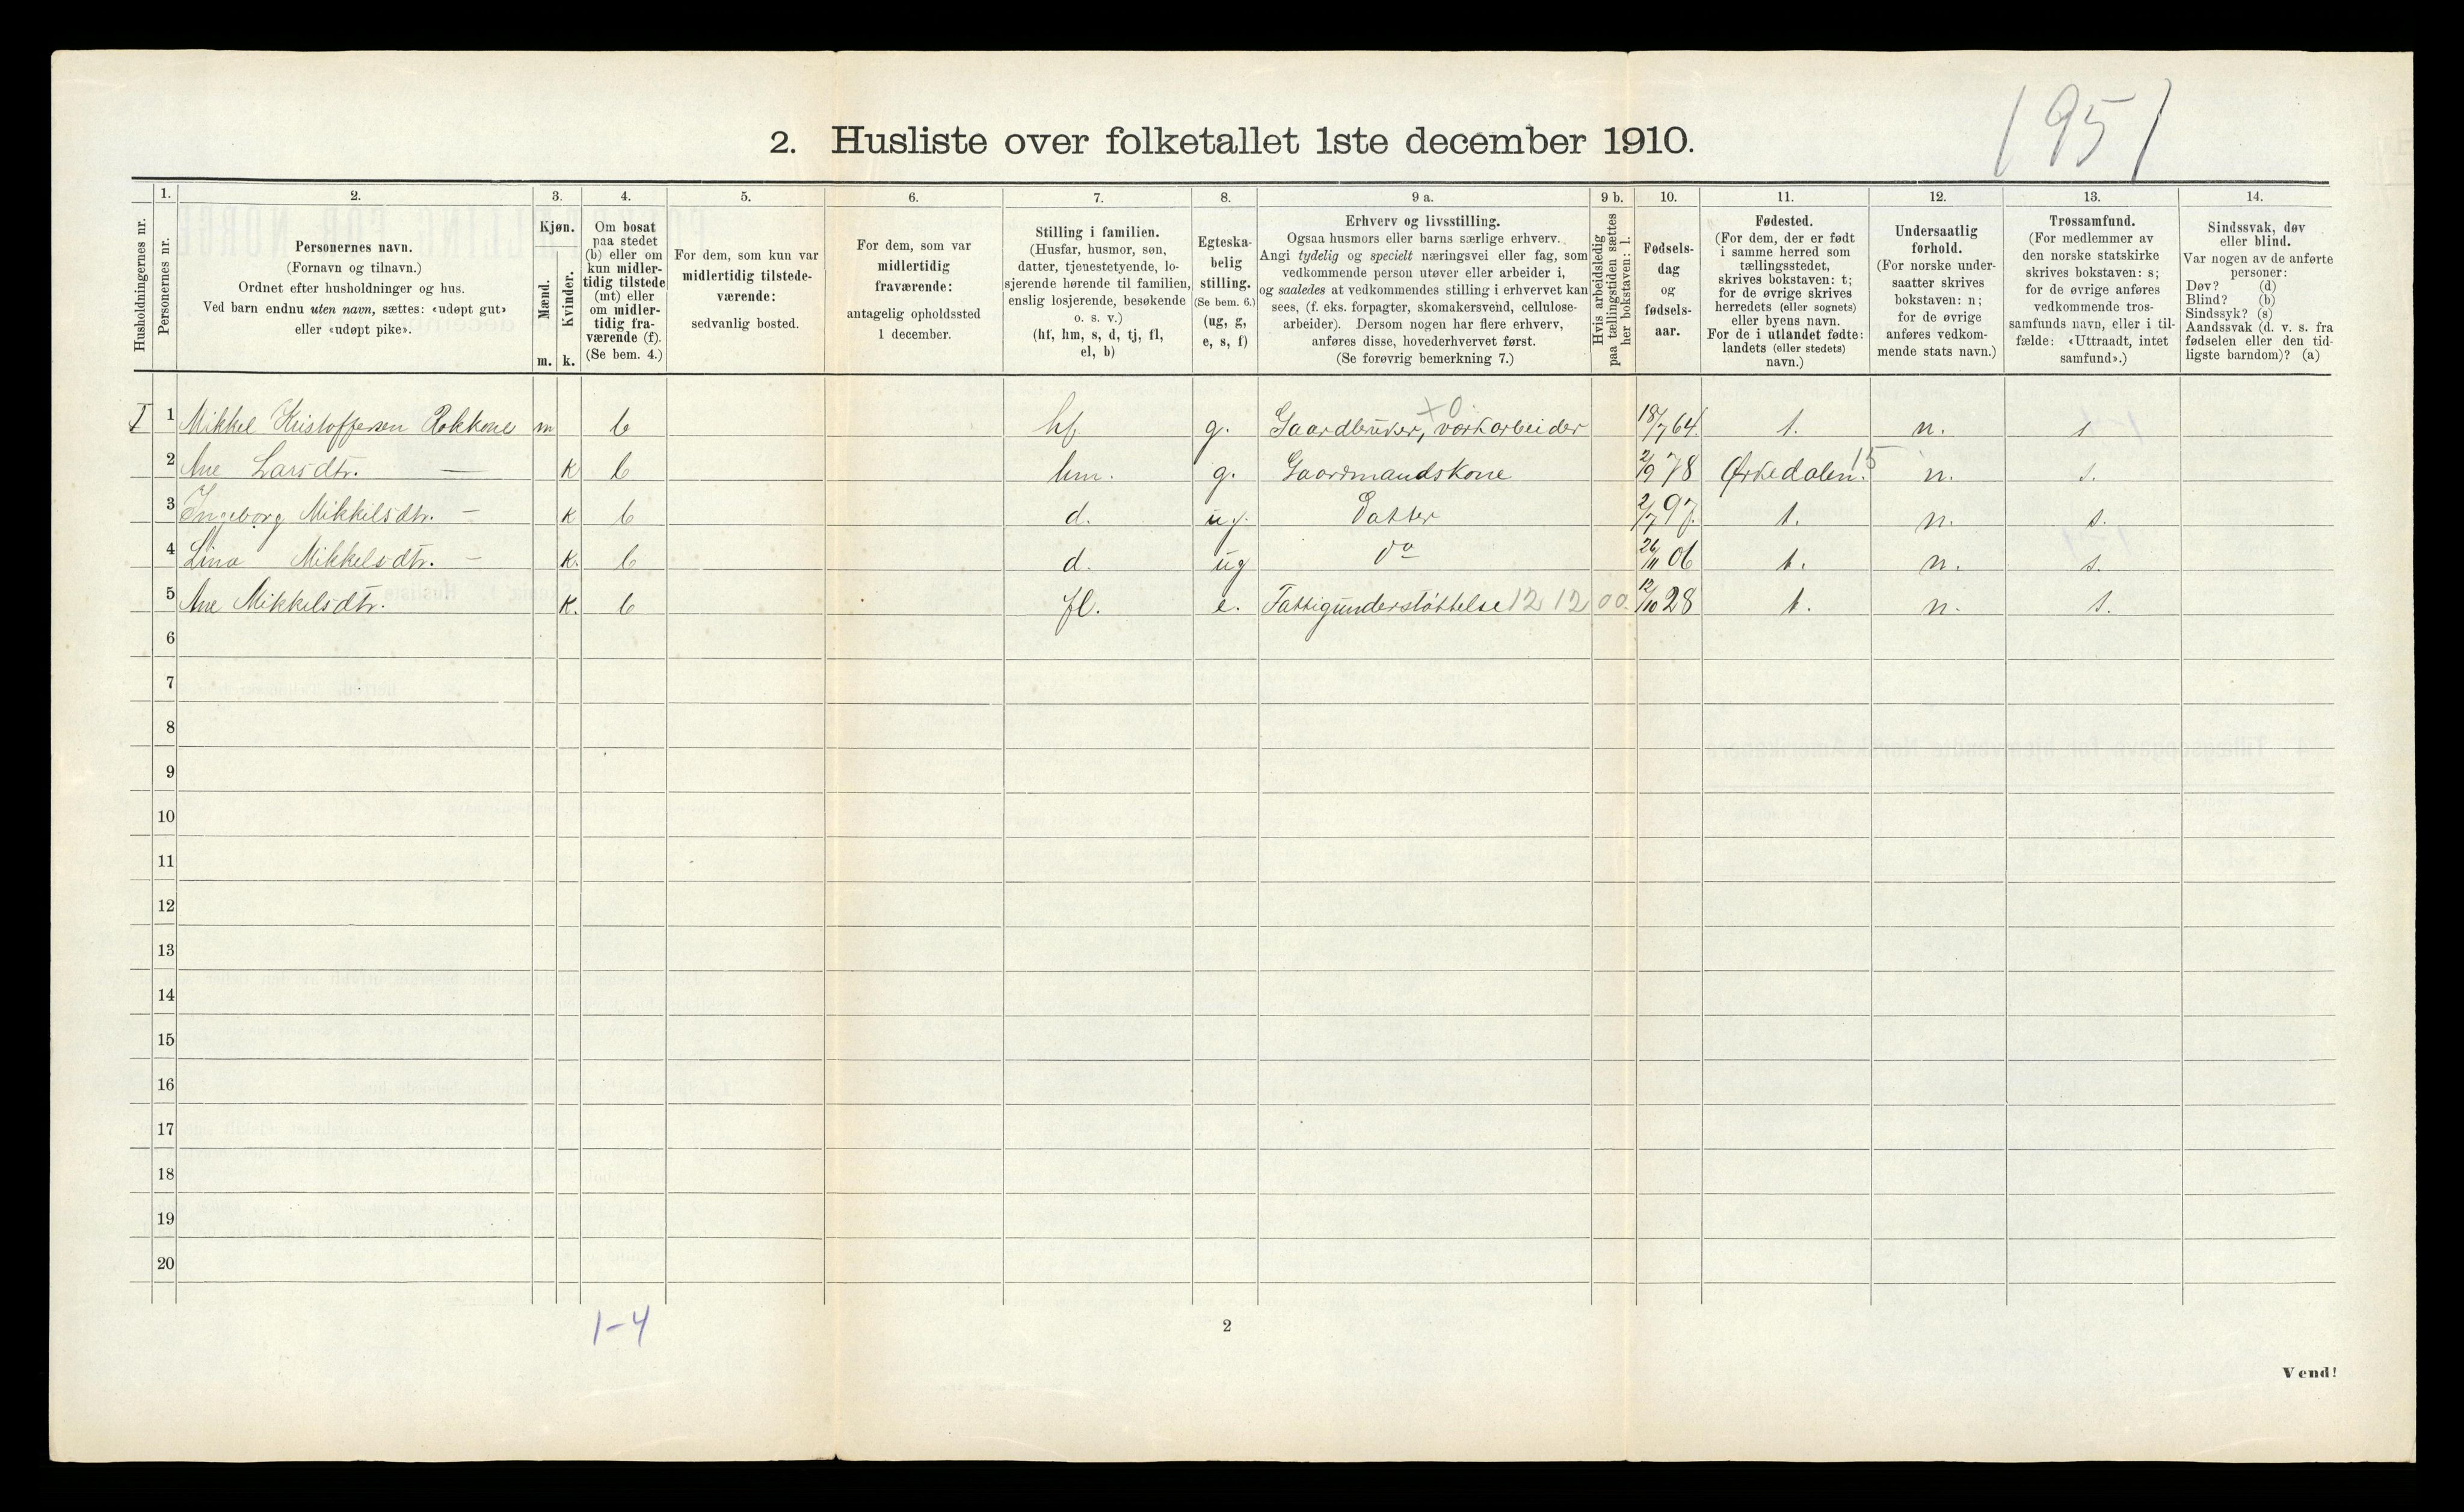 1951
2. Husliste over folketallet 1ste december 1910.
Husholdningernes nr.
1.
Personernes nr.
2.
Personernes navn.
(Fornavn og tilnavn.)
Ordnet efter husholdninger og hus.
Ved barn endnu uten navn, sættes: «udøpt gut»
eller «udøpt pike».
3.
Kjøn.
Mænd.
Kvinder.
m. k.
4.
Om bosat
paa stedet
(b) eller om
kun midler-
tidig tilstede
(mt) eller
om midler-
tidig fra-
værende (f).
(Se bem. 4.)
5.
For dem, som kun var
midlertidig tilstede-
værende:
sedvanlig bosted.
6.
For dem, som var
midlertidig
fraværende:
antagelig opholdssted
1 december.
7.
Stilling i familien.
(Husfar, husmor, søn,
datter, tjenestetyende, lo-
sjerende hørende til familien,
enslig losjerende, besøkende
o. s. v.)
(hf, hm, s, d, tj, fl,
el, b)
8.
Egteska-
belig
stilling.
(Se bem. 6.)
(ug, g,
e, s, f)
9 a.
Erhverv og livsstilling.
Ogsaa husmors eller barns særlige erhverv.
Angi tydelig og specielt næringsvei eller fag, som
vedkommende person utøver eller arbeider i,
og saaledes at vedkommendes stilling i erhvervet kan
sees, (f. eks. forpagter, skomakersvend, cellulose-
arbeider). Dersom nogen har flere erhverv,
anføres disse, hovederhvervet først.
(Se forøvrig bemerkning 7.)
9 b.
Hvis arbeidsledig
paa tællingstiden sættes
her bokstaven: l.
10.
Fødsels-
dag
og
fødsels-
aar.
11.
Fødested.
(For dem, der er født
i samme herred som
tællingsstedet,
skrives bokstaven: t;
for de øvrige skrives
herredets (eller sognets)
eller byens navn.
For de i utlandet fødte:
landets (eller stedets)
navn.)
12.
Undersaatlig
forhold.
(For norske under-
saatter skrives
bokstaven: n;
for de øvrige
anføres vedkom-
mende stats navn.)
13.
Trossamfund.
(For medlemmer av
den norske statskirke
skrives bokstaven: s;
for de øvrige anføres
vedkommende tros-
samfunds navn, eller i til-
fælde: «Uttraadt, intet
samfund».)
14.
Sindssvak, døv
eller blind.
Var nogen av de anførte
personer:
Døv? (d)
Blind? (b)
Sindssyk? (s)
Aandssvak (d. v. s. fra
fødselen eller den tid-
ligste barndom)? (a)
I 1 Mikkel Kristoffersen Rokkone m b hf. g. Gaardbruker, værkarbeider +0 18/7 64. t. n. s
2 Ane Larsdtr. — k b hm. g. Gaardmandskone 2/9 78 Ørkedalen. 15 n. s.
3 Ingeborg Mikkelsdtr. — k b d. ug. Datter 2/7 97. t. n. s.
4 Lina Mikkelsdtr. — k. b d. ug do 26/11 06 t. n. s.
5 Ane Mikkelsdtr. k. b fl. e. Fattigunderstøttelse 12 12 00. 12/10 28 t. n. s.
6
7
8
9
10
11
12
13
14
15
16
17
18
19
20
1-4
2
Vend!